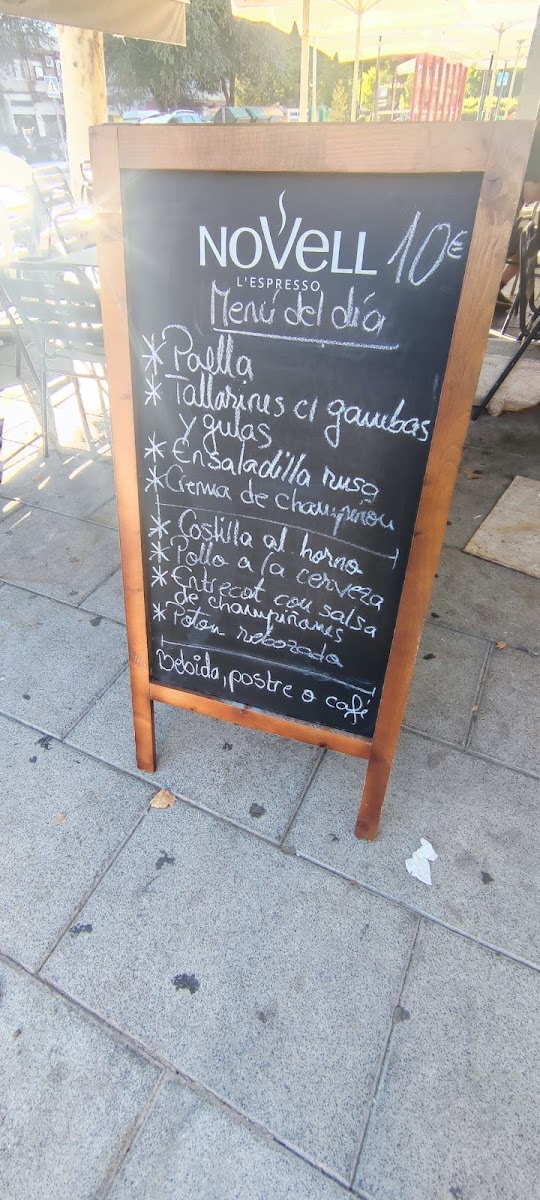 NOVELL 10€
L'ESPRESSO
Menú del día
* Paella
* Tallarines c/ gambas
y gulas
* Ensaladilla rusa
* Crema de champiñon
* Costilla al horno
* Pollo a la cerveza
* Entrecot con salsa
de champiñones
* Poton rebozada
Bebida, postre o café